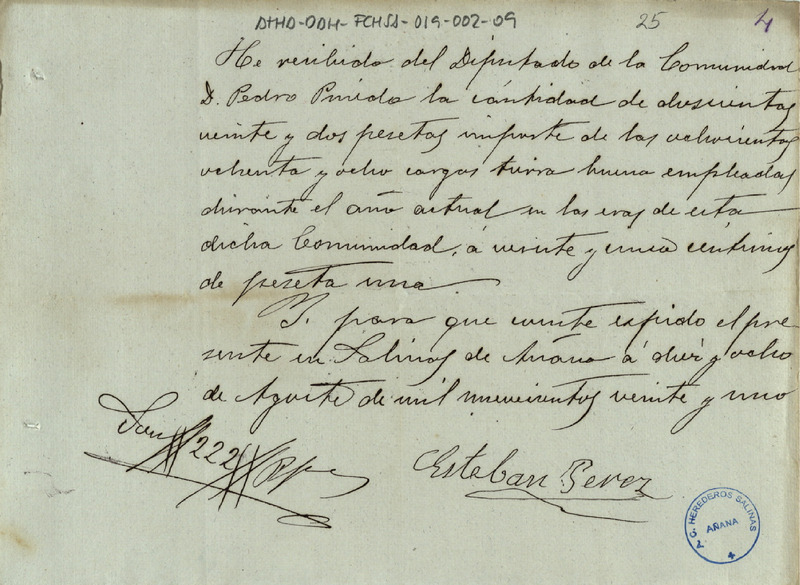 ATHA-DAH-FCHSA-019-002-09 25 4
He recibido del Diputado de la Comunidad
D. Pedro Pinedo la cántidad de doscientas
veinte y dos pesetas importe de las ochocientas
ochenta y ocho cargas tierra buena empleadas
durante el año actual en las eras de esta
dicha Comunidad, á veinte y cinco céntimos
de peseta una.
Y, para que conste expido el pre
sente en Salinas de Añana á diez y ocho
de Agosto de mil novecientos veinte y uno
Son #222# Pts
Esteban Perez
C. HEREDEROS SALINAS
AÑANA